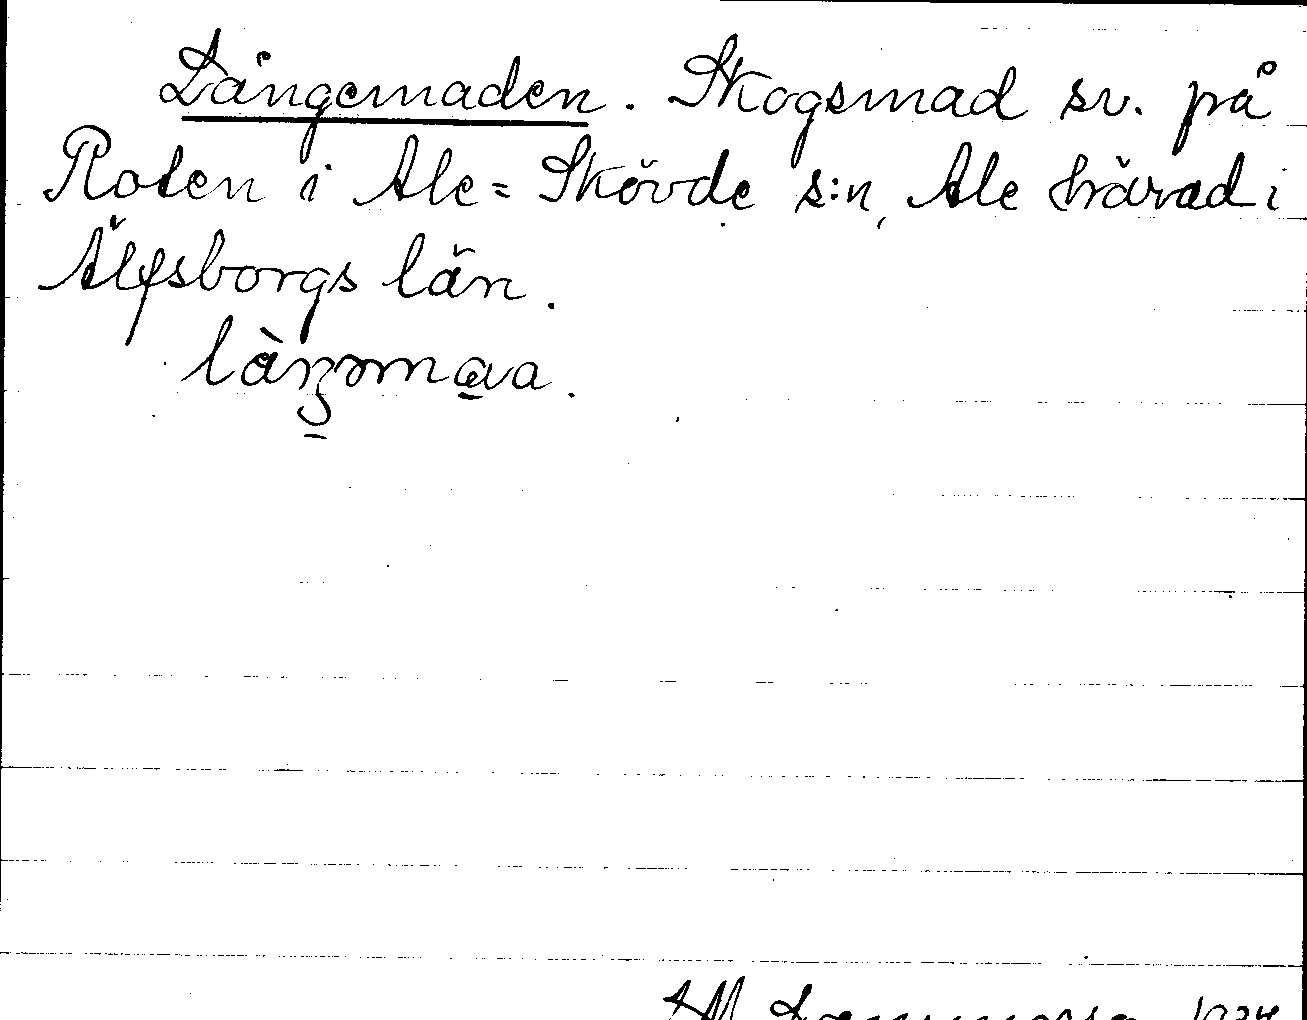 Långemaden. Skogsmad sv. på
Roten i Ale=Skövde s:n, Ale härad i
Älfsborgs län.